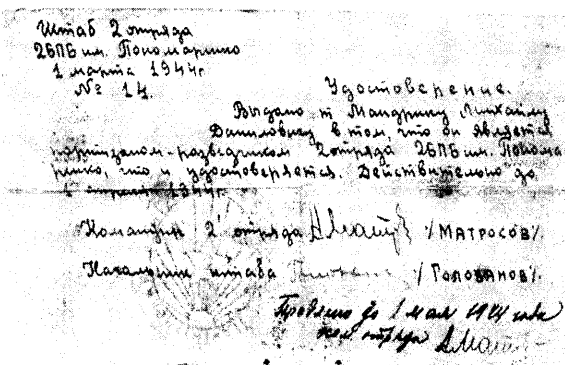 Штаб 2 отряда
2БПБ им. Пономаренко
1 марта 1944г.
№ 14
Удостоверение.
Выдано т. Мандрику Михаилу
Даниловичу в том, что он является
партизаном-разведчиком 2 отряда 2БПБ им. Понома
ренко, что и удостоверяется. Действительно до
1 апреля 1944г.
Командир 2 отряда /МАТРОСОВ/.
Начальник штаба /ГОЛОВАНОВ/.
Продлено до 1 мая 1944 года
ком. отряда